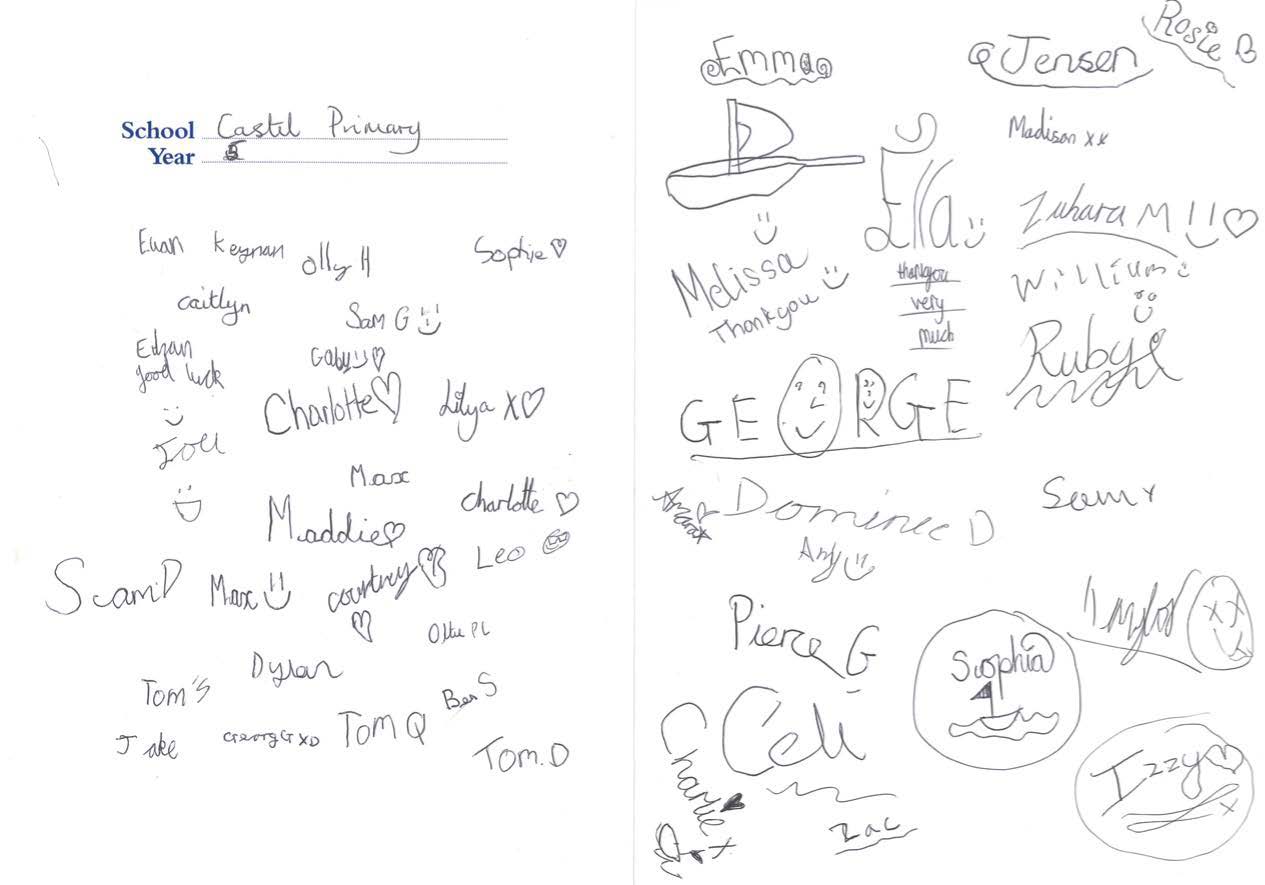 School Castel Primary
Year 5
Euan Keynan Olly H Sophie
Caitlyn
Sam G
Ethan
good luck
Gaby
Charlotte
Lilya X
Max
Maddie
Charlotte
Sam D
Max
Courtney
Leo
Dylan
Tom S
Ben S
Jake
Tom Q
Tom.D
Emma
Jensen
Rosie
Madison xx
Ella
thankyou
very
much
Zuhara M
Melissa
Thankyou
William
Ruby
GEORGE
Amara
Dominic D
Sam x
Amy
Pierce G
Taylor
Sophia
Charlie x
Izzy
x
Zac